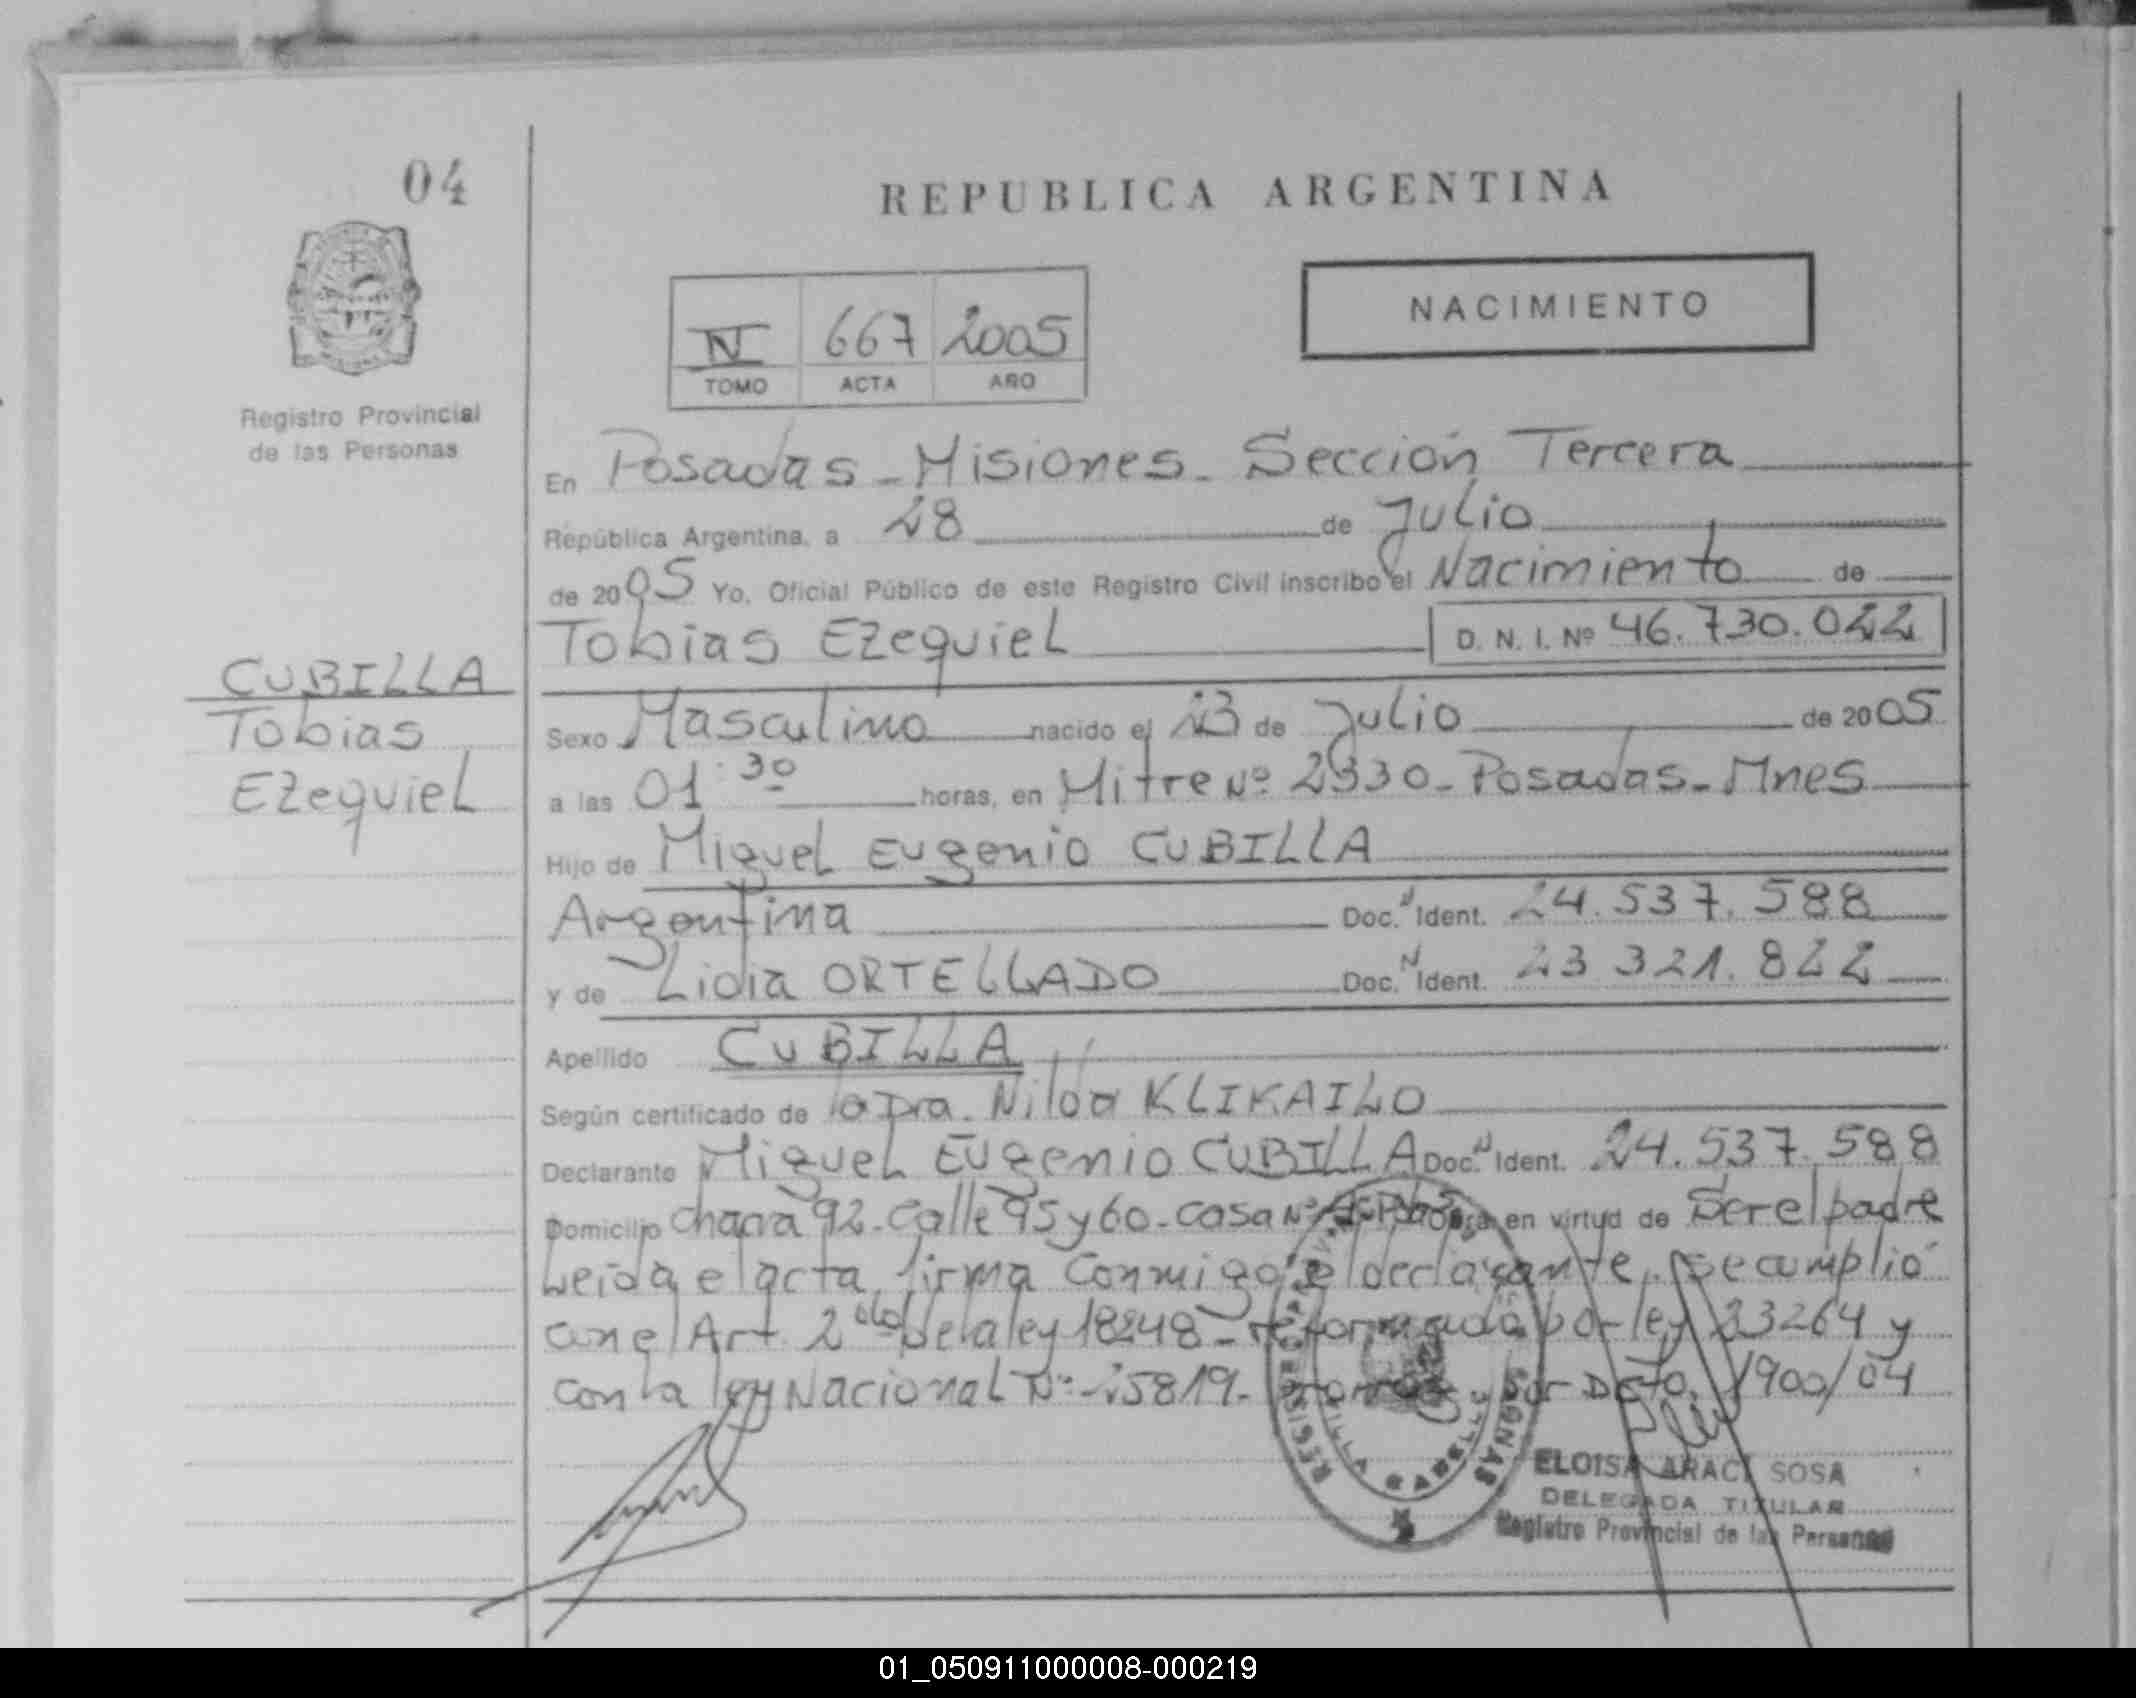 04
REPUBLICA ARGENTINA
NACIMIENTO
IV 667 2005
TOMO ACTA AÑO
Registro Provincial
de las Personas
En Posadas - Misiones - Sección Tercera
República Argentina, a 28 de Julio
de 2005 Yo, Oficial Público de este Registro Civil inscribo el Nacimiento de
Tobias Ezequiel D. N. I. Nº 46.730.022
CUBILLA
Tobias
Ezequiel
Sexo Masculino nacido el 23 de Julio de 2005
a las 01:30 horas, en Mitre Nº 2330 - Posadas - Mnes
Hijo de Miguel Eugenio CUBILLA
Argentina Doc. N Ident. 24.537.588
y de Lidia ORTELLADO Doc. N Ident. 23 321.822
Apellido CUBILLA
Según certificado de la Dra. Nilda KLIKAILO
Declarante Miguel Eugenio CUBILLA Doc. N Ident. 24.537.588
Domicilio chacra 92 - Calle 95 y 60 - casa Nº en virtud de Ser el padre
Leida el acta, firma conmigo el declarante, se cumplió
con el Art. 2 do de la ley 18248 - reformado por ley 23264 y
con la ley Nacional Nº 25819 - por Dcto. 1900/04
ELOISA ARACI SOSA
DELEGADA TITULAR
Registro Provincial de las Personas
VILLA CABELLO
01_050911000008-000219